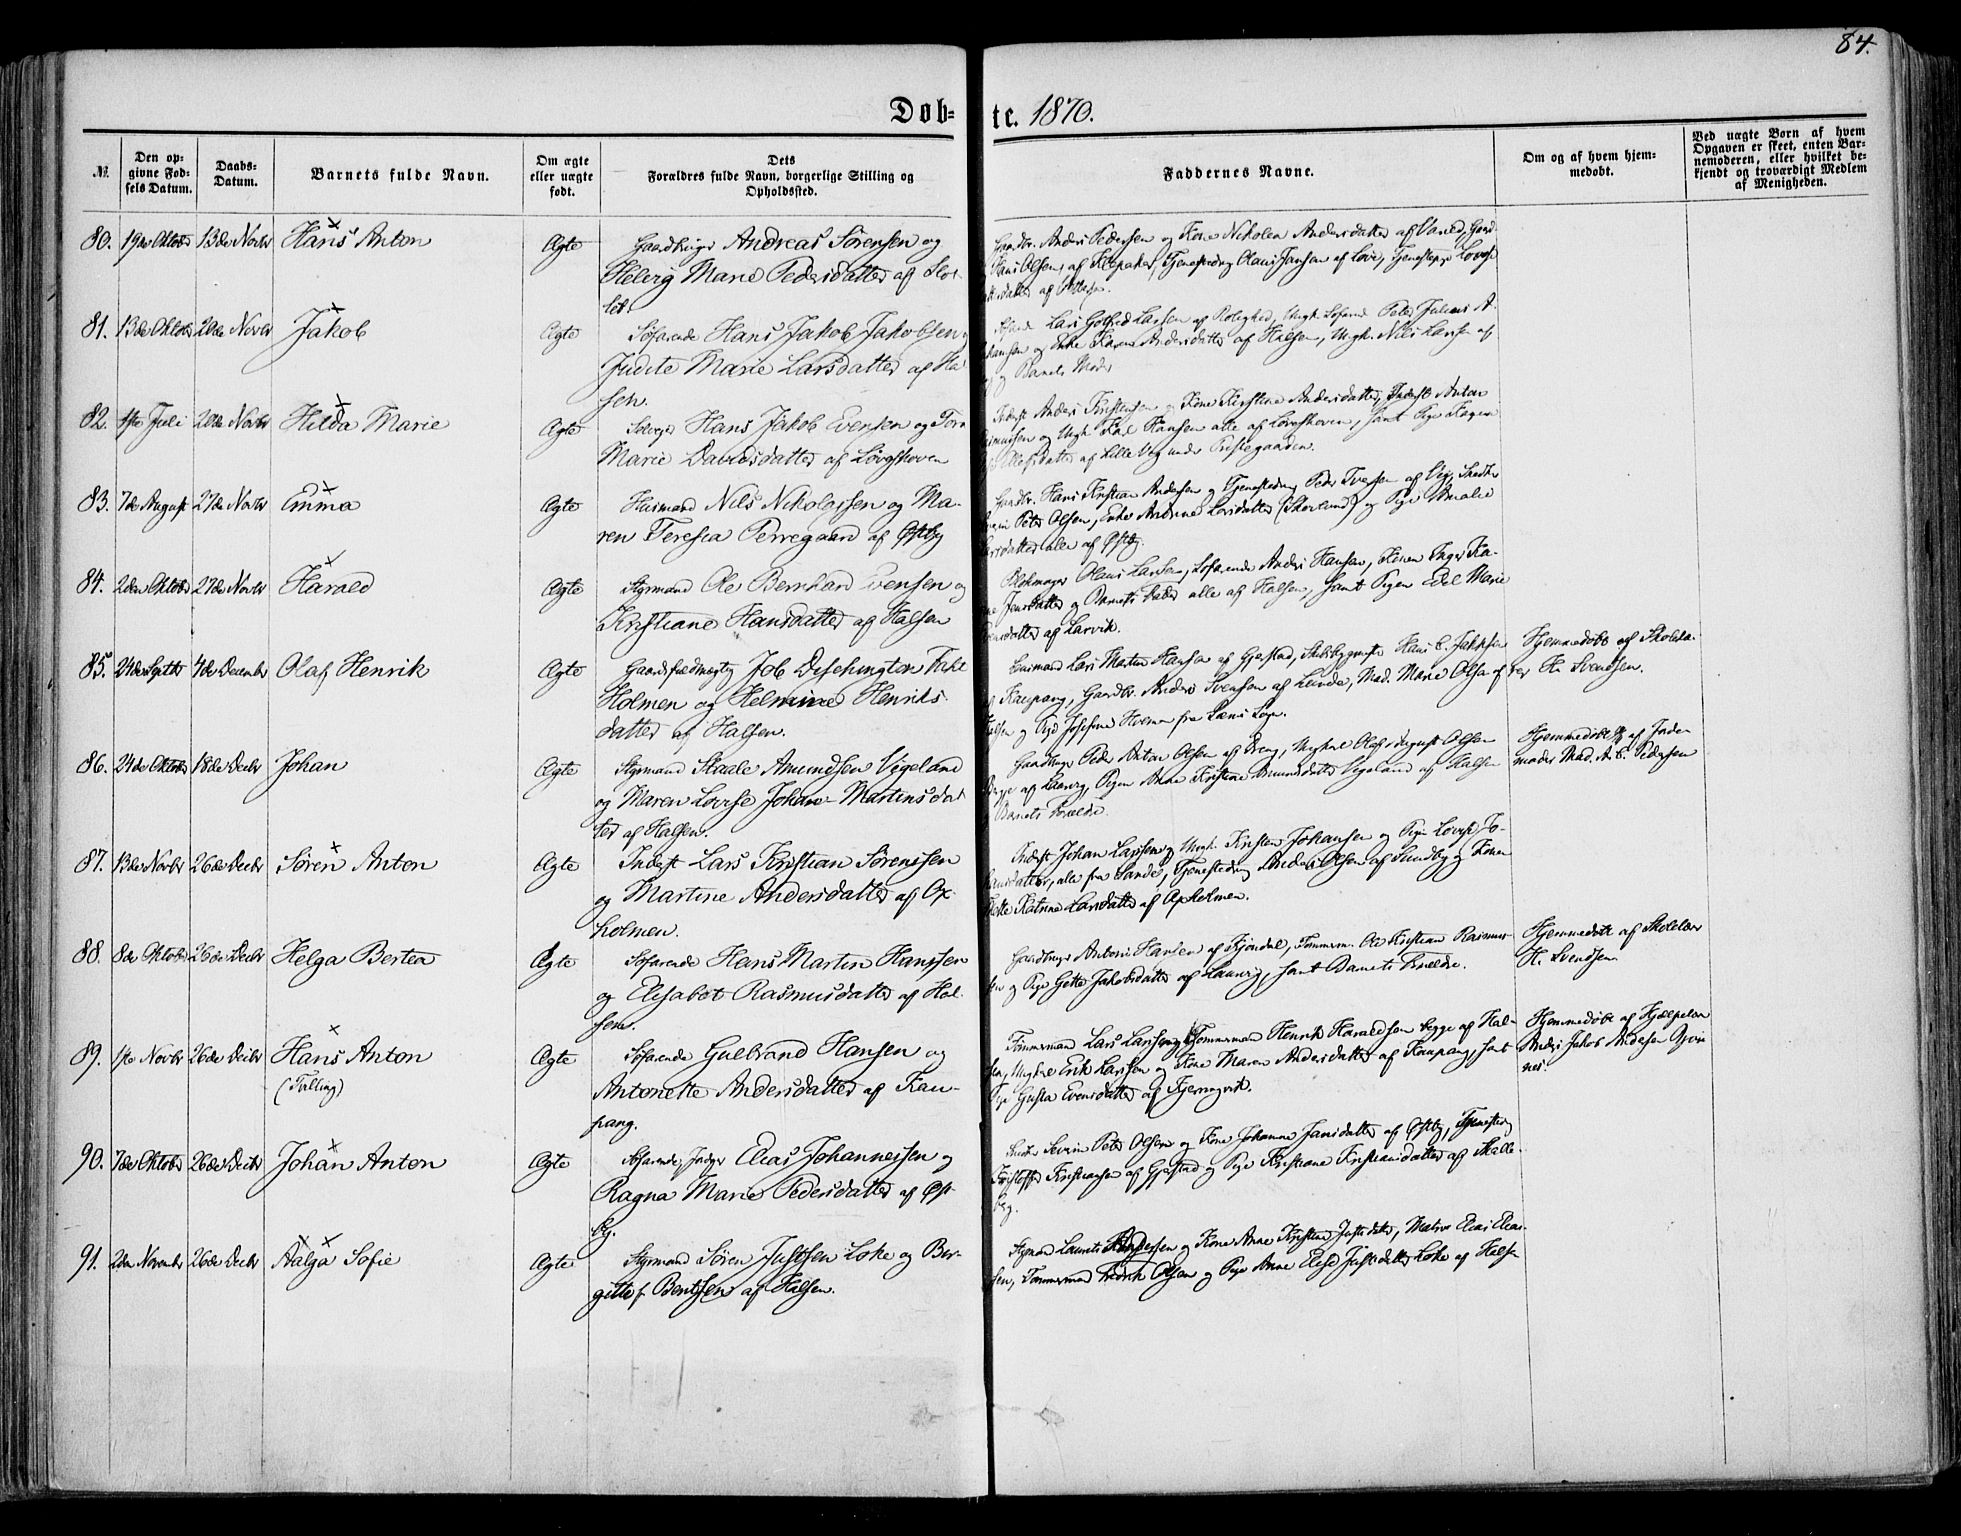 84.
Døb= te. 1870.
№.
Den op=
givne Fød=
sels Datum.
Daabs=
Datum.
Barnets fulde Navn.
Om ægte
eller uægte
født.
Dets
Forældres fulde Navn, borgerlige Stilling og
Opholdssted.
Faddernes Navne.
Om og af hvem hjem=
medøbt.
Ved uægte Børn af hvem
Opgaven er skeet, enten Bar=
nemoderen, eller hvilket be=
kjendt og troværdigt Medlem
af Menigheden.
80. 19de Oktober 13de Novbr Hans Anton Ægte Gaardbruger Andreas Sørensen og
Helvig Marie Pedersdatter af
Gaardbr. Anders Pedersen og Kone Nikolea Andersdatter af
Hans Olsen, af Olaus Jansen af
81. 13de Oktober 20de Novbr Jakob Ægte Søfarende Hans Jakob Jakobsen
Judite Marie Larsdatter af Hal
sen.
Lars Gotfred Larsen af Rolighed, Ungk. Søfarende Peter Julius
og Enke Karen Andersdatter af Halsen, Ungk. Nils Larsen af
og Barnets Moder
82. 4de Juli 20de Novbr Hilda Marie Ægte Selveier Hans Jakob Evensen og
Marie Davidsdatter af
Inderst Anders Kristensen og Kone Kirstine Andersdatter, Inderst Anton
og Ungk. Karl Hansen alle af samt Pige Karen
83. 7de August 27de Novbr Emma Ægte Huusmand Nils Nikolajsen og Ma-
ren Teresia Perregaard af Østby
Gaardbr. Hans Kristian Andersen og Tjenestedreng Peder Iversen af
Peter Olsen, Enke Andrine Larsdatter og Pige Amalie
alle af Østby.
84. 2den Oktober 27de Novbr Harald Ægte Styrmand Ole Bernhard Evensen og
Kristiane Hansdatter af Halsen
Blokmager Olaus Larsen, Søfarende Anders Hansen, Konen Inger Ka-
Jensdatter og Barnets Fader alle af Halsen, samt Pigen Edel Marie
af Larvik.
85. 24de Septbr 4de December Olaf Henrik Ægte Gaardsfuldmægtig Job Dischington
Holmen og Helmine Henriks
datter af Halsen.
Lars Martin Hansen af Gjerstad, Skibsbygmester Hans C. Jakobsen
af Kaupang, Gaardbr. Anders Svensen af Lunde, Mad. Marie Olsen af
Halsen og
Hjemmedøbt af Skolelæ-
rer H. Svendsen.
86. 24de Oktober 18de Decbr Johan Ægte Styrmand Staale Amundsen Vigeland
og Maren Lovise Johan-Martinsdat
ter af Halsen.
Gaardbruger Peder Anton Olsen af Ungkarl Olaf August Olsen
begge af Laurvig, Pigen Anne Kristine Amundsdatter Vigeland af Halsen
Barnets Forældre.
Hjemmedøbt af Jorde-
moder Mad. A. C. Pedersen
87. 13de Novbr 26de Decbr Søren Anton Ægte Inderst Lars Kristian Sørensen
og Martine Andersdatter af Ox-
holmen.
Inderst Johan Larsen og Ungk. Kristen Johansen og Pige Lovise Jo-
hansdatter, alle fra Sande, Tjenestedreng Anders Olsen af Sundby og Konen
Katrine Larsdatter af Oxholmen.
88. 8de Oktober 26de Decbr Helga Bertea Ægte Søfarende Hans Martin Hansen
og Elisabet Rasmusdatter af Hal-
sen.
Gaardbruger Antoni Hansen af Kjøndal, Tømmerm. Ole Kristian Rasmus-
sen og Pige Gette Jakobsdatter af Laurvig, samt Barnets Forældre.
Hjemmedøbt af Skolelærer
H. Svendsen
89. 1ste Novbr 26de Decbr Hans Anton Ægte Søfarende Gulbrand Hansen og
(Tvilling)
Antonette Andersdatter af Kau-
pang.
Tømmermand Lars Larsen og Tømmermand Henrik Haraldsen begge af Hal-
sen, Ungkarl Erik Larsen og Kone Maren Andersdatter af Kaupang, samt
Pige Gusta Evensdatter af
Hjemmedøbt af Hjælpelærer
Anders Jakob Andersen
90. 7de Oktober 26de Decbr Johan Anton Ægte Søfarende, Elias Johannessen og
Ragna Marie Pedersdatter af Øst-
by.
Severin Peter Olsen og Kone Johanne Jansdatter af Østby, Tjenestedreng
Kristoffer Kristiansen af Gjerstad og Pige Kristiane Kristiansdatter af Skalle-
berg.
91. 2den November 26de Decbr Aalga Sofie Ægte Styrmand Søren Justsen Loke og Ber-
gitte f. Bentsen af Halsen.
Styrmand Laurits Andersen og Kone Anne Kristine Justsdatter, Matros Elias Elias-
sen, Tømmermand Fredrik Olsen og Pige Anne Elise Justsdatter Loke af Halsen